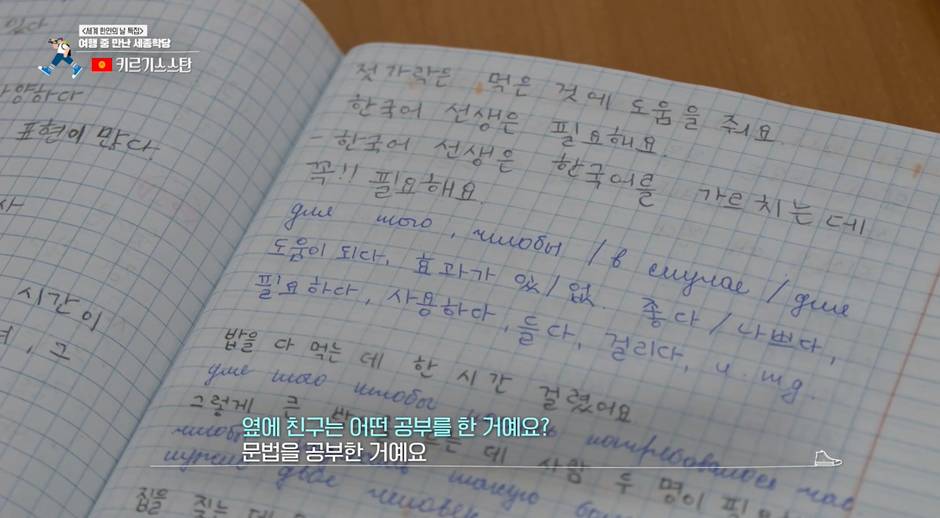 <세계 한인의 날 특집>
여행 중 만난 세종학당
키르기스스탄
있다
양하다
표현이 많다.
사
시간이
, 그
젓가락은 먹은 것에 도움을 줘요.
한국어 선생은 필요해요.
- 한국어 선생은 한국어를 가르치는데
꼭!! 필요해요.
для того, чтобы / в случае / для
도움이 되다, 효과가 있/없. 좋다/나쁘다,
필요하다, 사용하다, 들다, 걸리다, и тд.
밥을 다 먹는 데 한 시간 걸렸어요
для того чтобы потребовалось час
그렇게 큰 데 사람 두 명이
такую
нужно двое человек
집을 짓는 데
옆에 친구는 어떤 공부를 한 거예요?
문법을 공부한 거예요